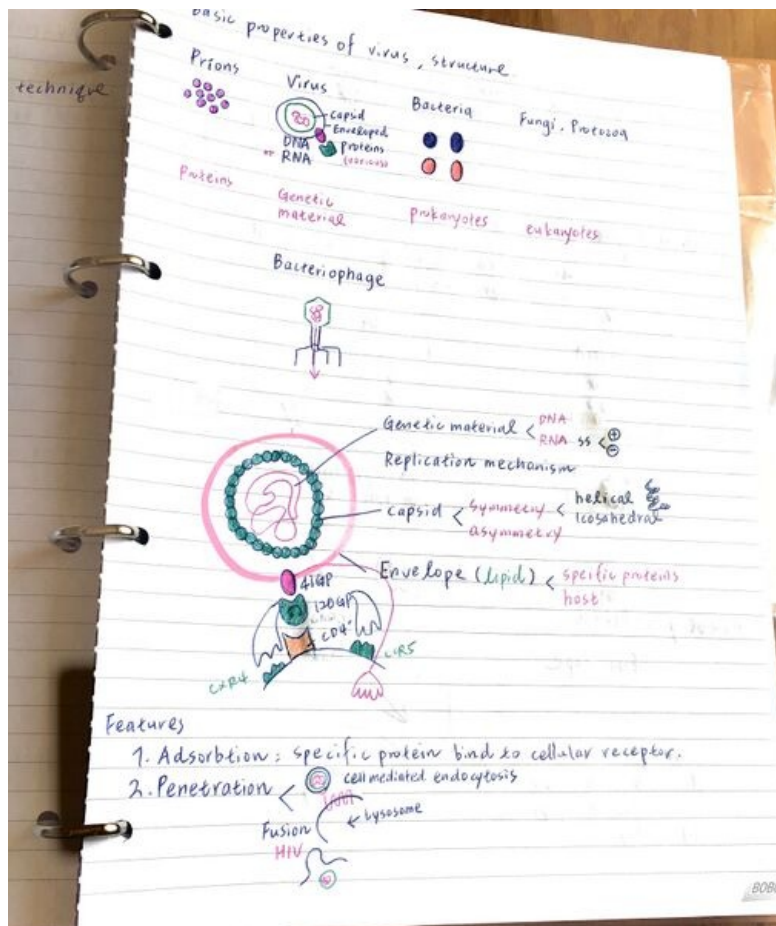 Basic properties of virus, structure
technique
Prions
Virus
Bacteria
Fungi, Protozoa
capsid
Enveloped
DNA
or RNA
Proteins
(various)
Proteins
Genetic
material
prokaryotes
eukaryotes
Bacteriophage
Genetic material < DNA
RNA ss < ⊕
⊖
Replication mechanism
capsid < symmetry < helical
Icosahedral
asymmetry
Envelope (lipid) < specific proteins
host
41GP
120GP
CD4+
CXR4
CCR5
Features
1. Adsorbtion : specific protein bind to cellular receptor.
2. Penetration < cell mediated endocytosis
← Lysosome
Fusion
HIV
BOBO